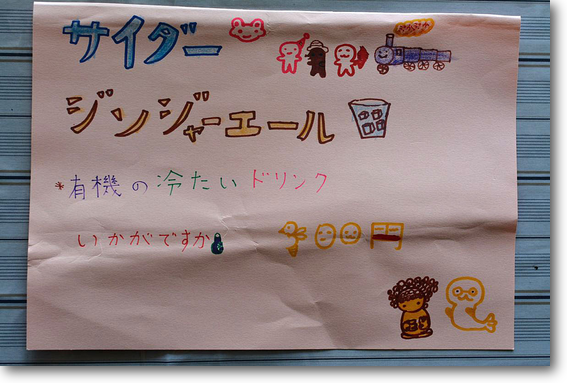 サイダー
ジンジャーエール
*有機の冷たいドリンク
いかがですか 300円